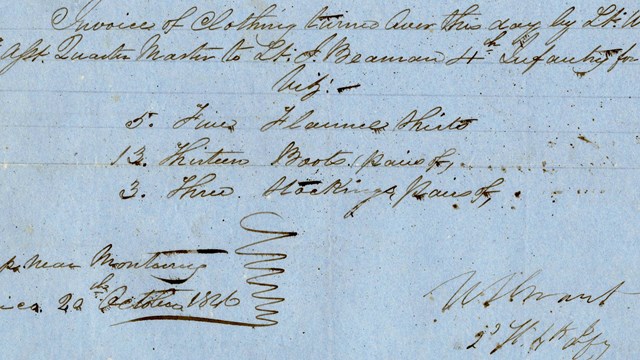 Invoice of Clothing turned over this day by Lt. U
Asst. Quarter Master to Lt. J. Beaman 4th Infantry for
Viz:—
5. Five Flannel Shirts
13. Thirteen Boots (pairs of)
3. Three Stockings pairs of,
p near Monterey
ico. 2d October 1846
U S Grant
2d Lt. 4th Ify